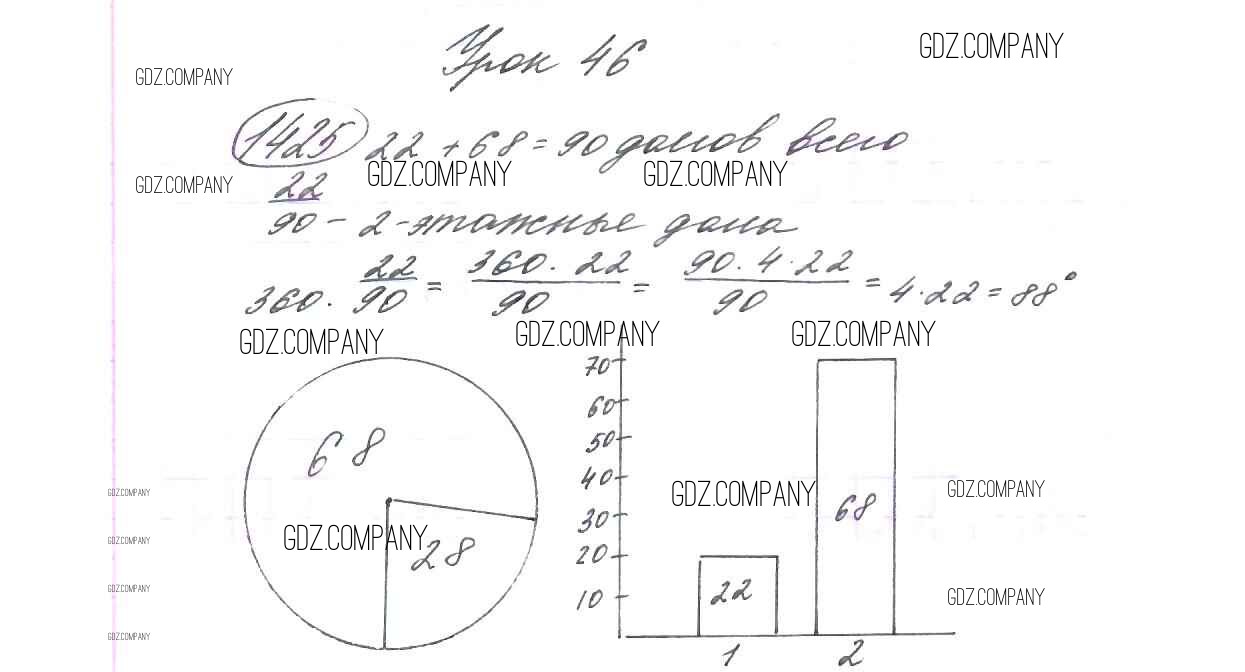 Урок 46
GDZ.COMPANY
GDZ.COMPANY
1425 22 + 68 = 90 домов всего
GDZ.COMPANY GDZ.COMPANY GDZ.COMPANY
22/90 - 2-этажные дома
360 · 22/90 = 360 · 22/90 = 90 · 4 · 22/90 = 4 · 22 = 88°
GDZ.COMPANY GDZ.COMPANY GDZ.COMPANY
70
60
50
40
30
20
10
68
28
GDZ.COMPANY
22
68
1 2
GDZ.COMPANY
GDZ.COMPANY
GDZ.COMPANY
GDZ.COMPANY
GDZ.COMPANY
GDZ.COMPANY
GDZ.COMPANY